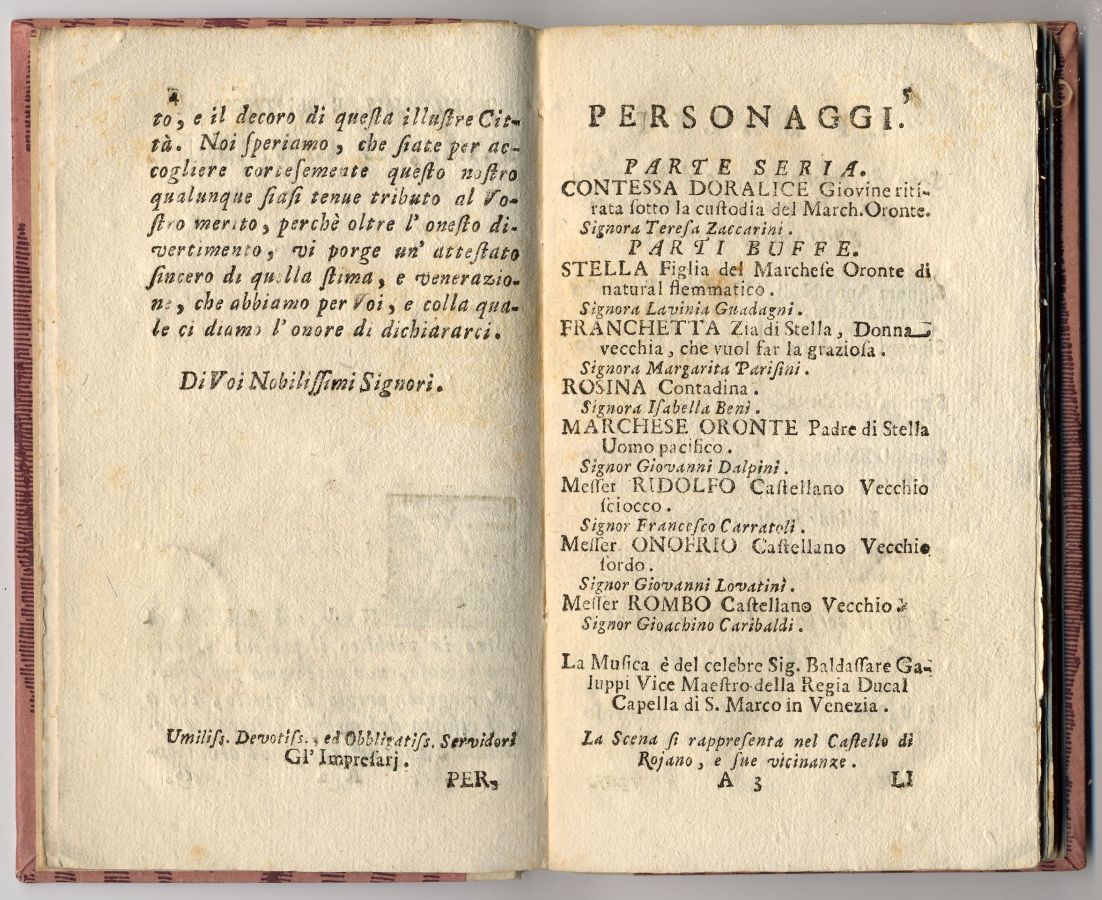 4
to, e il decoro di queſta illuſtre Cit-
tà. Noi ſperiamo, che ſiate per ac-
cogliere corteſemente queſto noſtro
qualunque ſiaſi tenue tributo al Vo-
ſtro merito, perchè oltre l' oneſto di-
vertimento, vi porge un' atteſtato
ſincero di quella ſtima, e venerazio-
ne, che abbiamo per Voi, e colla qua-
le ci diamo l'onore di dichiararci.
Di Voi Nobiliſſimi Signori.
Umiliſs. Devotiſs., ed Obbligatiſs. Servidori
Gl' Impreſarj.
PER-
5
PERSONAGGI.
PARTE SERIA.
CONTESSA DORALICE Giovine riti-
rata ſotto la cuſtodia del March. Oronte.
Signora Tereſa Zaccarini.
PARTI BUFFE.
STELLA Figlia del Marcheſe Oronte di
natural flemmatico.
Signora Lavinia Guadagni.
FRANCHETTA Zia di Stella, Donna
vecchia, che vuol far la grazioſa.
Signora Margarita Pariſini.
ROSINA Contadina.
Signora Iſabella Beni.
MARCHESE ORONTE Padre di Stella
Uomo pacifico.
Signor Giovanni Dalpini.
Meſſer RIDOLFO Caſtellano Vecchio
ſciocco.
Signor Franceſco Carratoli.
Meſſer ONOFRIO Caſtellano Vecchio
ſordo.
Signor Giovanni Lovatini.
Meſſer ROMBO Caſtellano Vecchio.
Signor Gioachino Caribaldi.
La Muſica è del celebre Sig. Baldaſſare Ga-
luppi Vice Maeſtro della Regia Ducal
Capella di S. Marco in Venezia.
La Scena ſi rappreſenta nel Caſtello di
Rojano, e ſue vicinanze.
A 3 LI